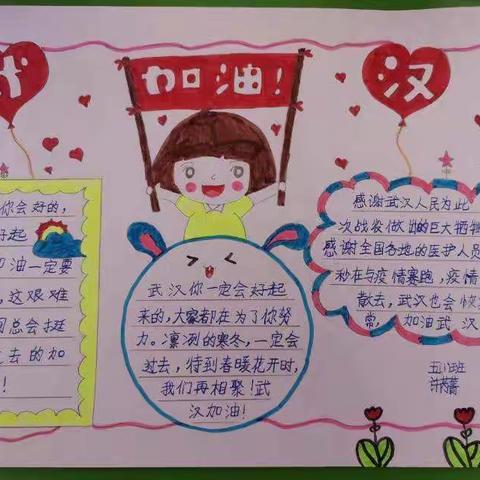 加油!
汉
你会好的,
好起
加油一定要
,这艰难
总会挺
过去的加
!
武汉你一定会好起
来的,大家都在为了你努
力。凛冽的寒冬,一定会
过去,待到春暖花开时,
我们再相聚!武
汉加油!
感谢武汉人民为此
次战役做出的巨大牺牲
感谢全国各地的医护人员
秒在与疫情赛跑,疫情
散去,武汉也会恢
常,加油武汉